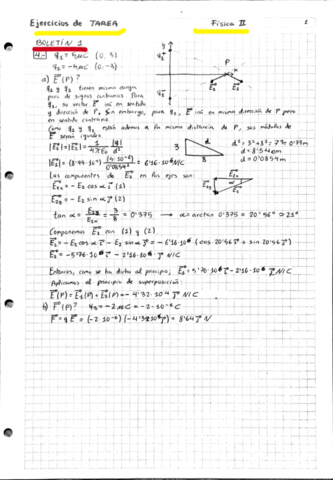 Ejercicios de TAREA Física II 1
BOLETÍN 1
4.- q₁ = 4µC (0, 3)
q₂ = -4µC (0, -3)
a) E⃗ (P)?
q₁ y q₂ tienen misma carga
pero de signos contrarios. Para
y dirección de P. Sin embargo, para q₂, E⃗ irá en misma dirección de P pero
en sentido contrario.
Como q₁ y q₂ están además a la misma distancia de P, sus módulos de
E⃗ serán iguales
|E⃗₁| = |E⃗₂| = 1/4πε₀ |q|/d²
3 d 8
d² = 3² + 8²
d = 0'0854m
Las componentes de E⃗₂ en los ejes son:
E⃗₂ₓ = -E₂ cos α i⃗ (1)
E⃗₂y = -E₂ sin α j⃗ (2)
tan α = E₂y/E₂ₓ = 3/8 = 0'375 → α = arctan 0'375 = 20'56° ≃ 21°
Componemos E⃗₂ con (1) y (2)
E⃗₂ = -E₂ cos α i⃗ - E₂ sin α j⃗ = -6'16·10⁶ (cos 20'56 i⃗ + sin 20'56 j⃗)
E⃗₂ = -5'76·10⁶ i⃗ - 2'16·10⁶ j⃗ N/C
Entonces, como se ha dicho al principio, E⃗₁ = 5'76·10⁶ i⃗ - 2'16·10⁶ j⃗ N/C
Aplicamos el principio de superposición:
E⃗(P) = E⃗₁(P) + E⃗₂(P) = -4'32·10⁶ j⃗ N/C
b) F⃗ (P)? q₃ = -2µC = -2·10⁻⁶ C
F⃗ = q E⃗ = (-2·10⁻⁶)(-4'32·10⁶ j⃗) = 8'64 j⃗ N